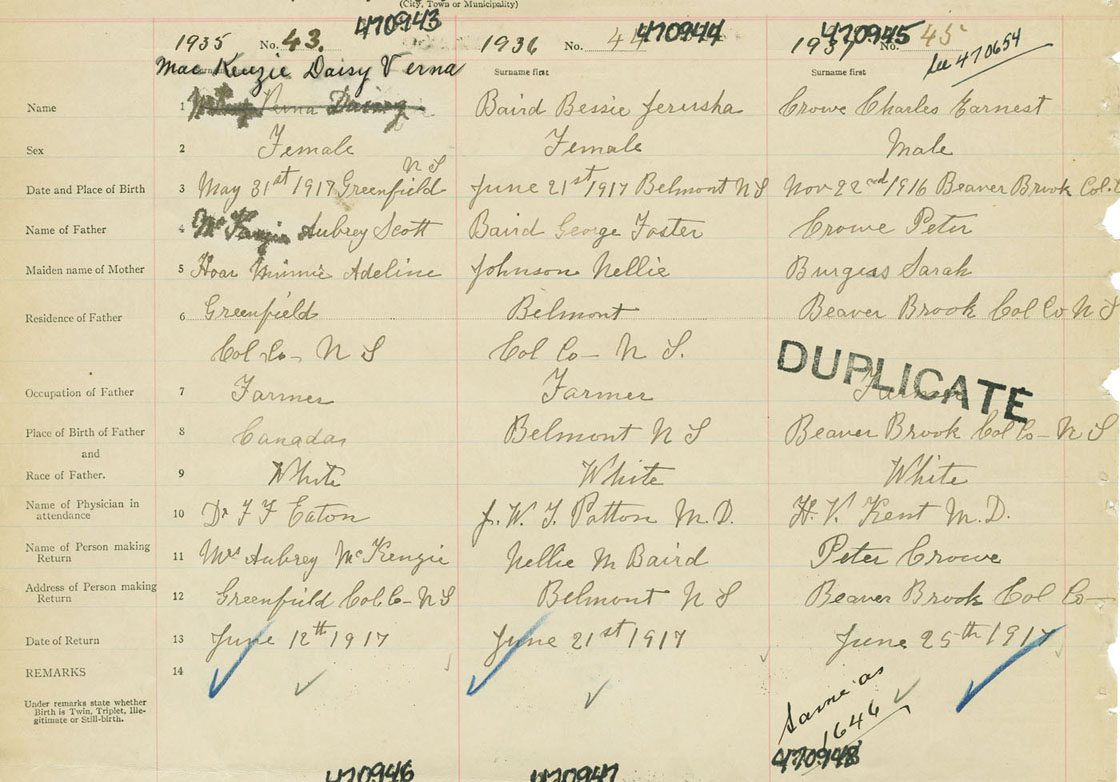 (City, Town or Municipality)
470943
470944
470945
1935 No. 43.
1936 No. 44
1937 No. 45
See 470654
Mac Kenzie Daisy Verna
Surname first
Surname first
Name 1 Verna Baird Bessie Jerusha Crowe Charles Earnest
Sex 2 Female Female Male
N S
Date and Place of Birth 3 May 31st 1917 Greenfield June 21st 1917 Belmont N S Nov 22nd 1916 Beaver Brook Col.
Name of Father 4 Aubrey Scott Baird George Foster Crowe Peter
Maiden name of Mother 5 Hoar Minnie Adeline Johnson Nellie Burgess Sarah
Residence of Father 6 Greenfield Belmont Beaver Brook Col Co N S
Col Co- N S Col Co- N S.
DUPLICATE
Occupation of Father 7 Farmer Farmer Farmer
Place of Birth of Father 8 Canada Belmont N S Beaver Brook Col Co- N S
and
Race of Father. 9 White White White
Name of Physician in
attendance 10 Dr F F Eaton J. W. T. Patton M.D. H. V. Kent M.D.
Name of Person making
Return 11 Mrs Aubrey McKenzie Nellie M Baird Peter Crowe
Address of Person making
Return 12 Greenfield Col. Co- N S Belmont N S Beaver Brook Col Co-
Date of Return 13 June 12th 1917 June 21st 1917 June 25th 1917
REMARKS 14
Under remarks state whether
Birth is Twin, Triplet, Ille-
gitimate or Still-birth.
Same as
1646
470946
470947
470948